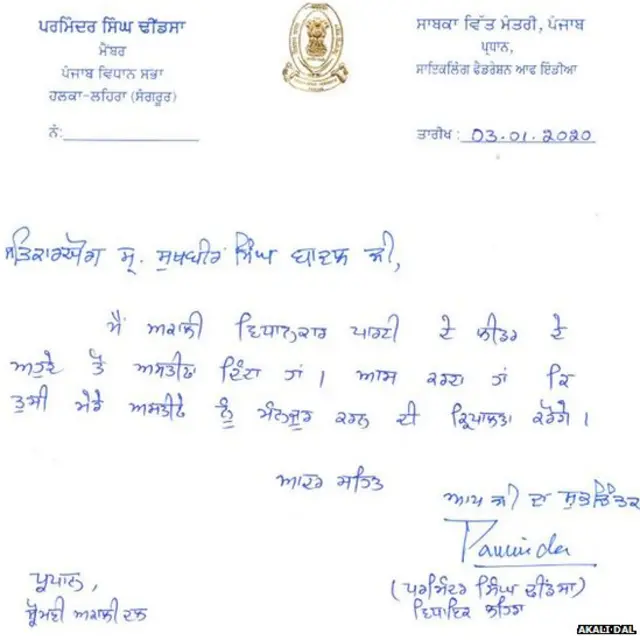 ਪਰਮਿੰਦਰ ਸਿੰਘ ਢੀਂਡਸਾ
ਮੈਂਬਰ
ਪੰਜਾਬ ਵਿਧਾਨ ਸਭਾ
ਹਲਕਾ-ਲਹਿਰਾ (ਸੰਗਰੂਰ)
ਨੰ:
ਸਾਬਕਾ ਵਿੱਤ ਮੰਤਰੀ, ਪੰਜਾਬ
ਪ੍ਰਧਾਨ,
ਸਾਇਕਲਿੰਗ ਫੈਡਰੇਸ਼ਨ ਆਫ ਇੰਡੀਆ
ਤਾਰੀਖ : 03.01.2020
ਸਤਿਕਾਰਯੋਗ ਸ੍ਰ. ਸੁਖਬੀਰ ਸਿੰਘ ਬਾਦਲ ਜੀ,
ਮੈਂ ਅਕਾਲੀ ਵਿਧਾਨਕਾਰ ਪਾਰਟੀ ਦੇ ਲੀਡਰ ਦੇ
ਅਹੁਦੇ ਤੋਂ ਅਸਤੀਫਾ ਦਿੰਦਾ ਹਾਂ । ਆਸ ਕਰਦਾ ਹਾਂ ਕਿ
ਤੁਸੀ ਮੇਰੇ ਅਸਤੀਫੇ ਨੂੰ ਮੰਨਜੂਰ ਕਰਨ ਦੀ ਕ੍ਰਿਪਾਲਤਾ ਕਰੋਗੇ ।
ਆਦਰ ਸਹਿਤ
ਆਪ ਜੀ ਦਾ ਸ਼ੁਭਚਿੰਤਕ
Parminder
(ਪਰਮਿੰਦਰ ਸਿੰਘ ਢੀਂਡਸਾ)
ਵਿਧਾਇਕ ਲਹਿਰਾ
ਪ੍ਰਧਾਨ,
ਸ਼੍ਰੋਮਣੀ ਅਕਾਲੀ ਦਲ
AKALI DAL